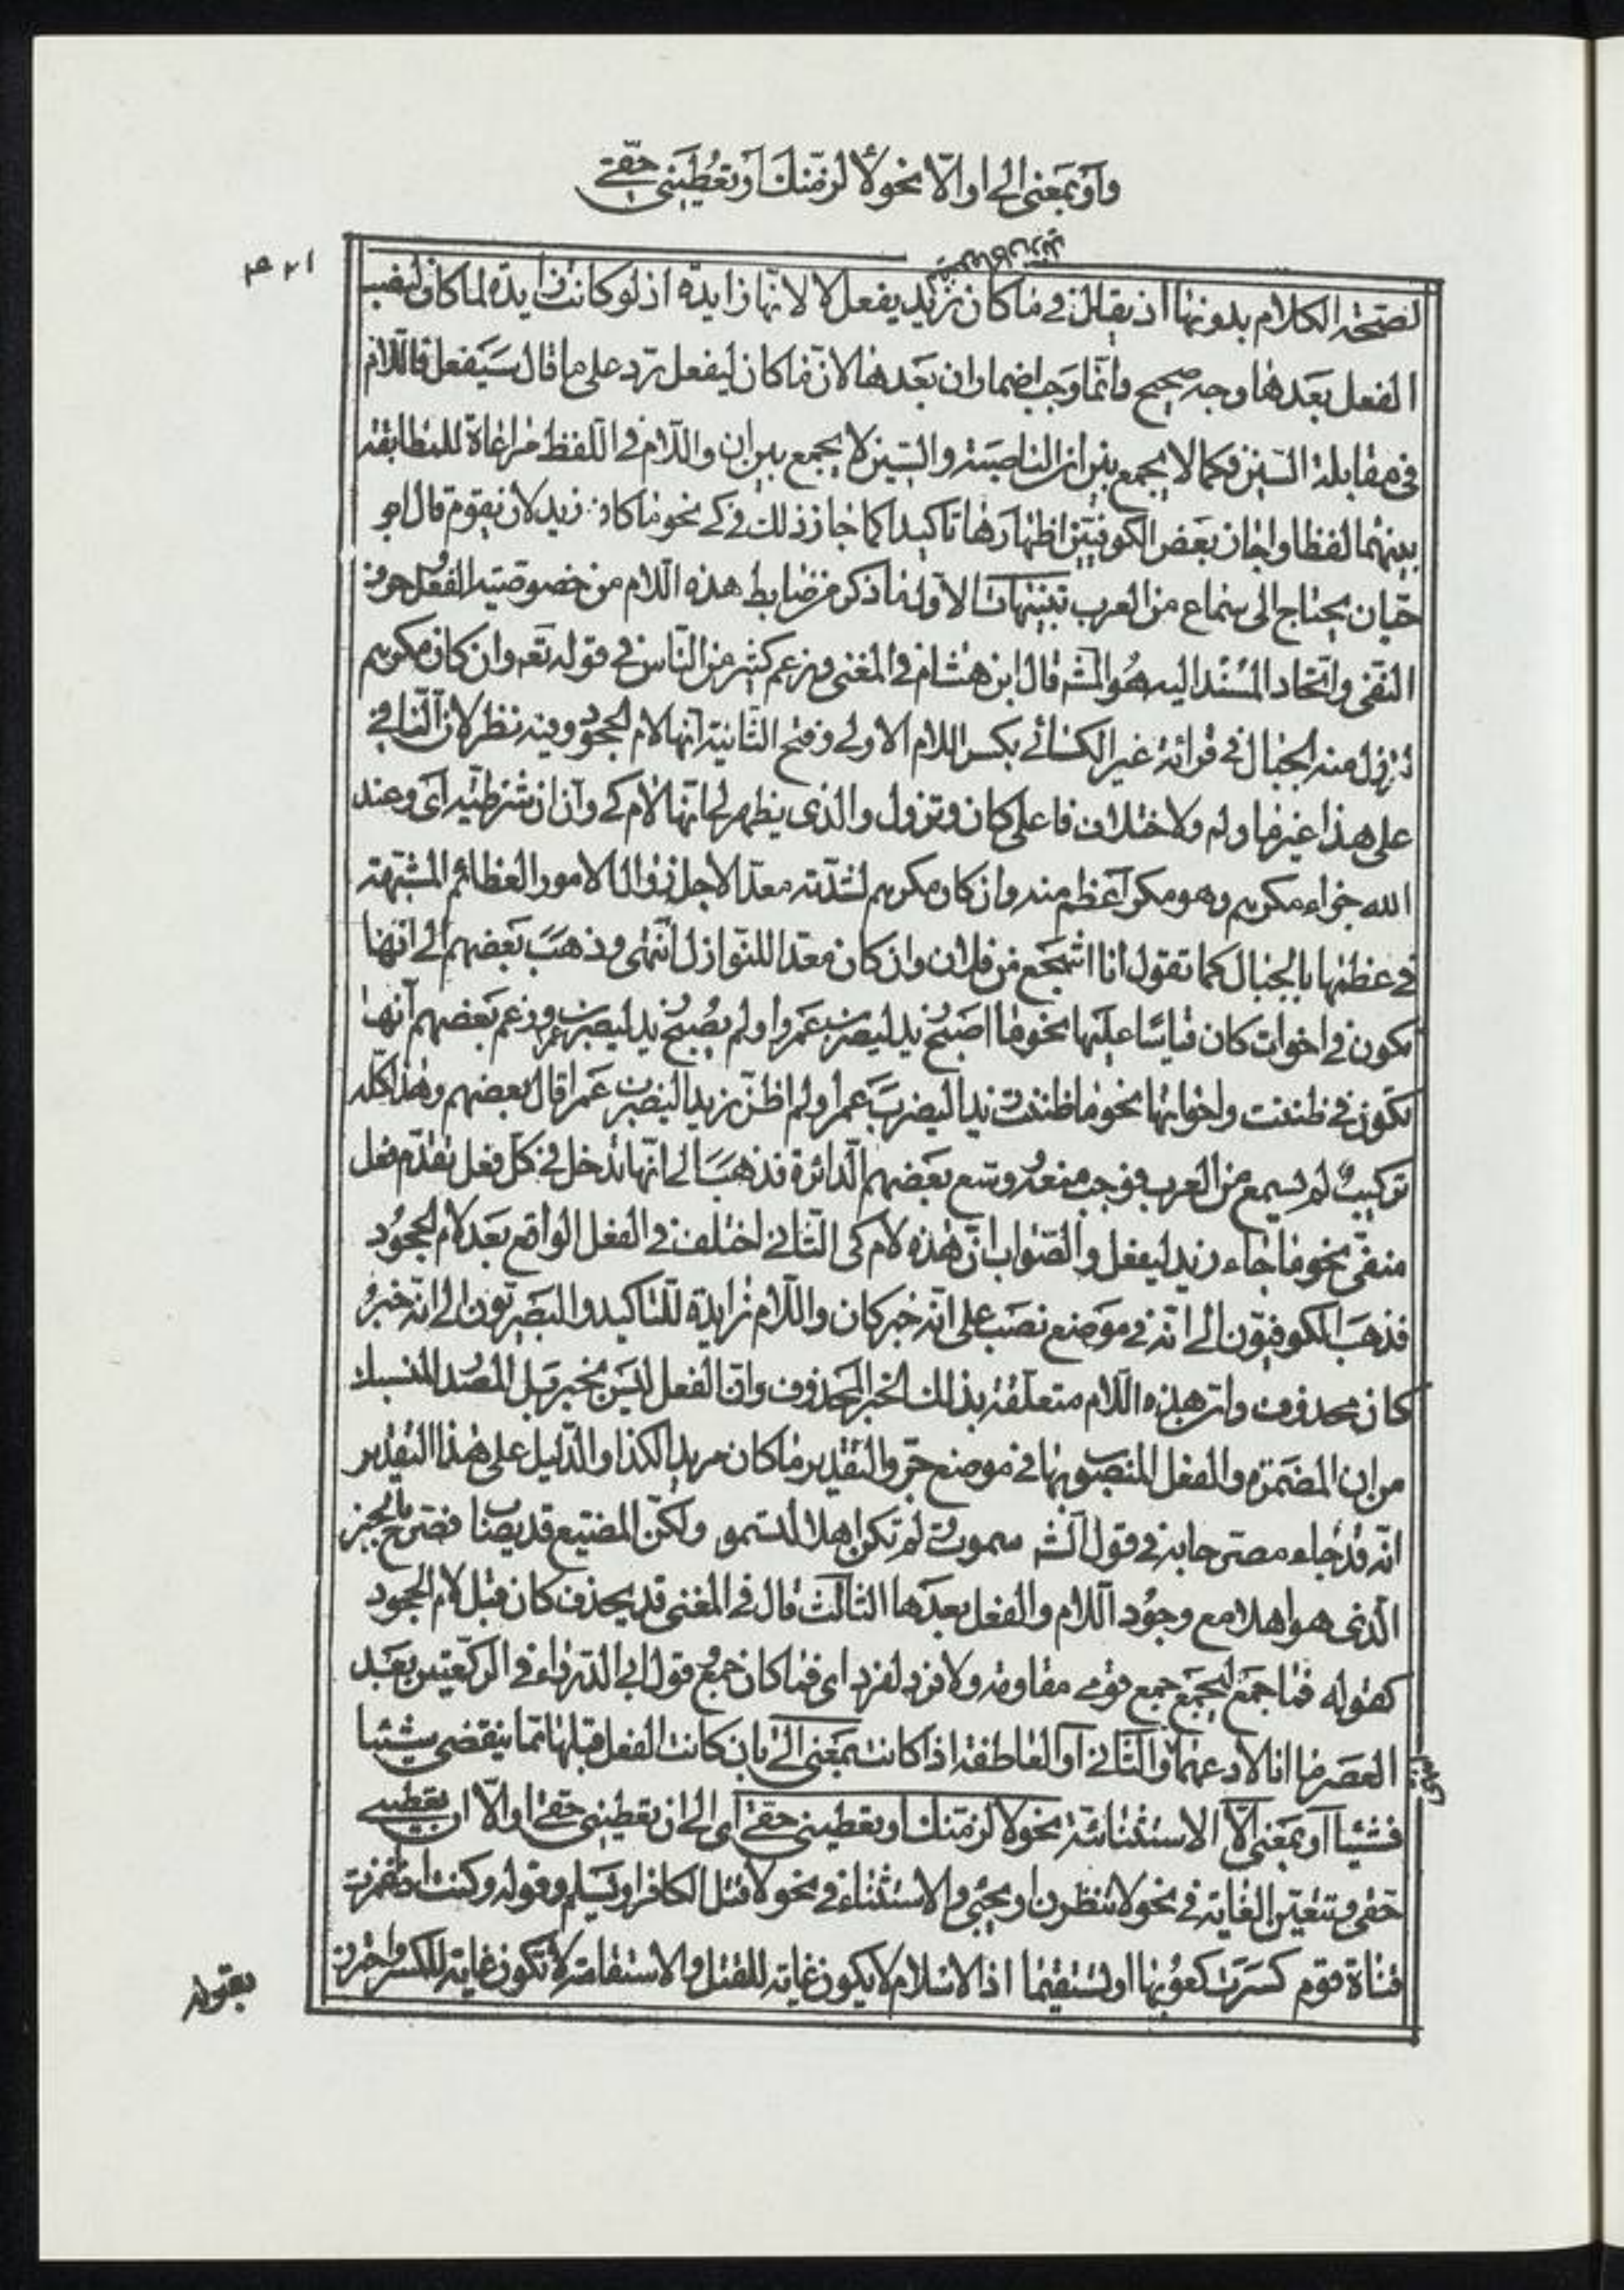 وأو بمعنى إلى او الّا نحو لألزمنّك أو تعطيني حقّي
لصحّة الكلام بدونها اذ يقال في ما كان زيد ليفعل ما كان زيد يفعل لا لانّها زايدة اذ لو كانت زايدة لما كان لنصب
الفعل بعدها وجه صحيح وانّما وجب اضمار ان بعدها لانّ ما كان ليفعل ردّ على ما قال سيفعل فاللّام
في مقابلة السّين فكما لا يجمع بين ان الناصبة والسّين لا يجمع بين ان واللّام في اللّفظ مراعاة للمطابقة
بينهما لفظا واجاز بعض الكوفيّين اظهارها تاكيدا كما جاز ذلك في كي نحو ما كان زيد لان يقوم قال ابو
حيّان يحتاج الى سماع من العرب تنبيهات الاوّل ما ذكر من ضابط هذه اللّام من خصوصيّة الفعل وحرف
النّفي واتّحاد المسند اليه هو المشه قال ابن هشام في المغني وزعم كثير من النّاس في قوله تعه وان كان مكرهم
لتزول منه الجبال في قرائة غير الكسائي بكسر اللام الاولى وفتح الثّانية انّها لام الجحود وفيه نظر لانّ النّافي
على هذا غير ما ولم ولاختلاف فاعلي كان وتزول والذي يظهر لي انّها لام كي وانّ ان شرطيّة اي وعند
الله جزاء مكرهم وهو مكر أعظم منه وان كان مكرهم لشدّته معدّا لاجل زوال الامور العظائم المشبّهة
في عظمها بالجبال كما تقول انا اشجع من فلان وان كان معدّا للنّوازل انتهى وذهب بعضهم الى انّها
تكون في اخوات كان قياسًا عليها نحو ما اصبح زيد ليضرب عمروا ولم يصبح زيد ليضرب عمرا وزعم بعضهم انّها
تكون في ظننت واخواتها نحو ما ظننت زيدا ليضرب عمرا ولم اظنّ زيدا ليضرب عمرا قال بعضهم وهذا كلّه
تركيبٌ لم يسمع من العرب فوجب منعه ووسّع بعضهم الدّائرة فذهب الى انّها تدخل في كل فعل تقدّم فعل
منفيّ نحو ما جاء زيد ليفعل والصّواب انّ هذه لام كي الثّاني اختلف في الفعل الواقع بعد لام الجحود
فذهب الكوفيّون الى انّه في موضع نصب على انّه خبر كان واللّام زايدة للتاكيد والبصريّون الى انّه خبر
كان محذوف وانّ هذه اللّام متعلّقة بذلك الخبر المحذوف وانّ الفعل ليس بخبر بل المصدر المنسبك
من ان المضمرة والفعل المنصوب بها في موضع جرّ والتقدير ما كان مريدا لكذا والدّليل على هذا التقدير
انّه قد جاء مصرّحا به في قول الشه سموت ولم تكن اهلا لتسمو ولكنّ المضيّع قد يصاب فصرّح بالخبر
الّذي هو اهلا مع وجود اللّام والفعل بعدها الثالث قال في المغني قد يحذف كان قبل لام الجحود
كقوله فما جمع ليجمع جمع قومي مقاومة ولا فرد لفرد اي فما كان جمع وقول ابي الدّرداء في الركعتين بعد
العصر ما انا لادعهما والثّاني أو العاطفة اذا كانت بمعنى الى بان كانت الفعل قبلها ممّا ينقضي شيئا
فشيئا أو بمعنى الّا الاستثنائيّة نحو لالزمنّك او تعطيني حقّي اي الى ان تعطيني حقّي او الّا ان تعطيني
حقّي وتتعيّن الغاية في نحو لانتظرنّ او يجيء والاستثناء في نحو لاقتل الكافر او يسلم وقوله وكنت اذا غمزت
قناة قوم كسرت كعوبها او تستقيما اذ الاسلام لا يكون غاية للقتل والاستقامة لا تكون غاية للكسر واحترز
بقوله